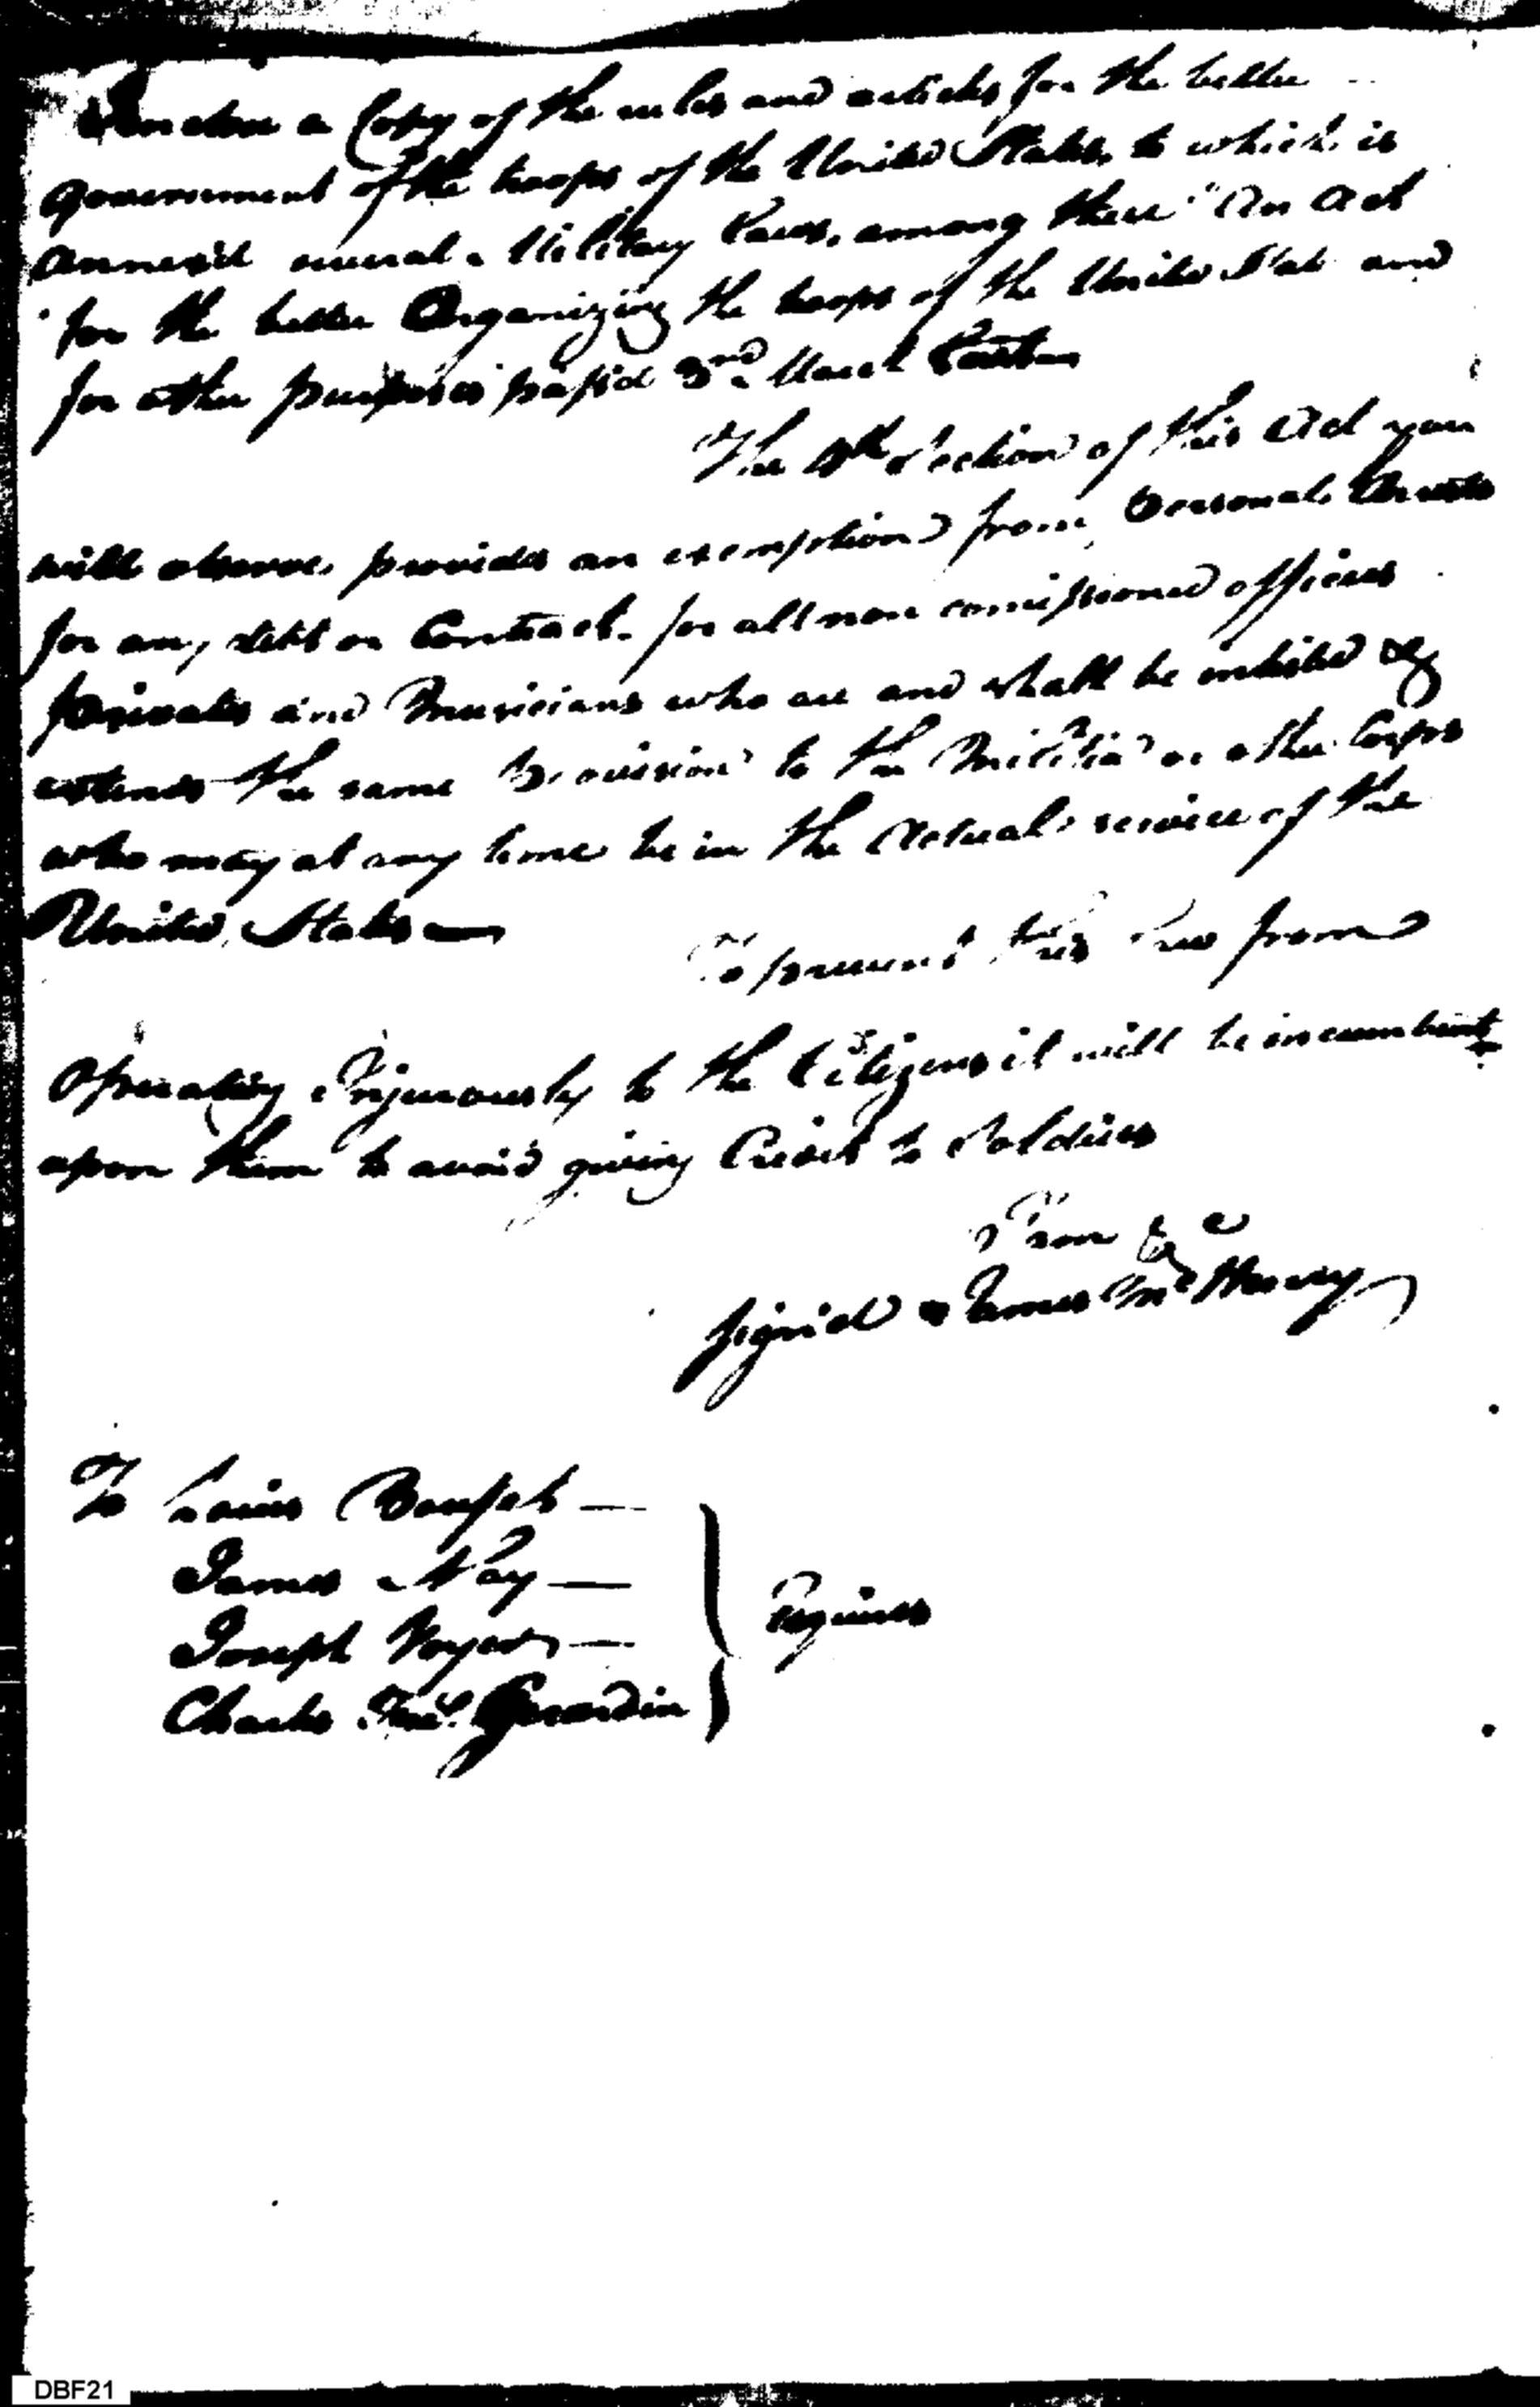 Inclose a Copy of the rules and articles for the better
government of the troops of the United States, to which is
annex'd several Military Laws, among these "An Act
"for the better Organizing the troops of the United Stat and
for other purposes pass'd 3rd March
The 4th Section of this Act you
will observe, provides an exemption from personal Arrests
for any debt or Contract. for all non comissioned officers
privates and Musicians who are and shall be inlisted &
extends the same provision to the Militia or other Corps
who may at any time be in the Actual service of the
United States —
To prevent this from
Operating Injuriously to the Citizens it will be incumbent
upon them to avoid giving Credit to Soldiers
I am &c
sign'd James McHenry
To Louis
James Nay —
Joseph —
Charles
Engineers
DBF21